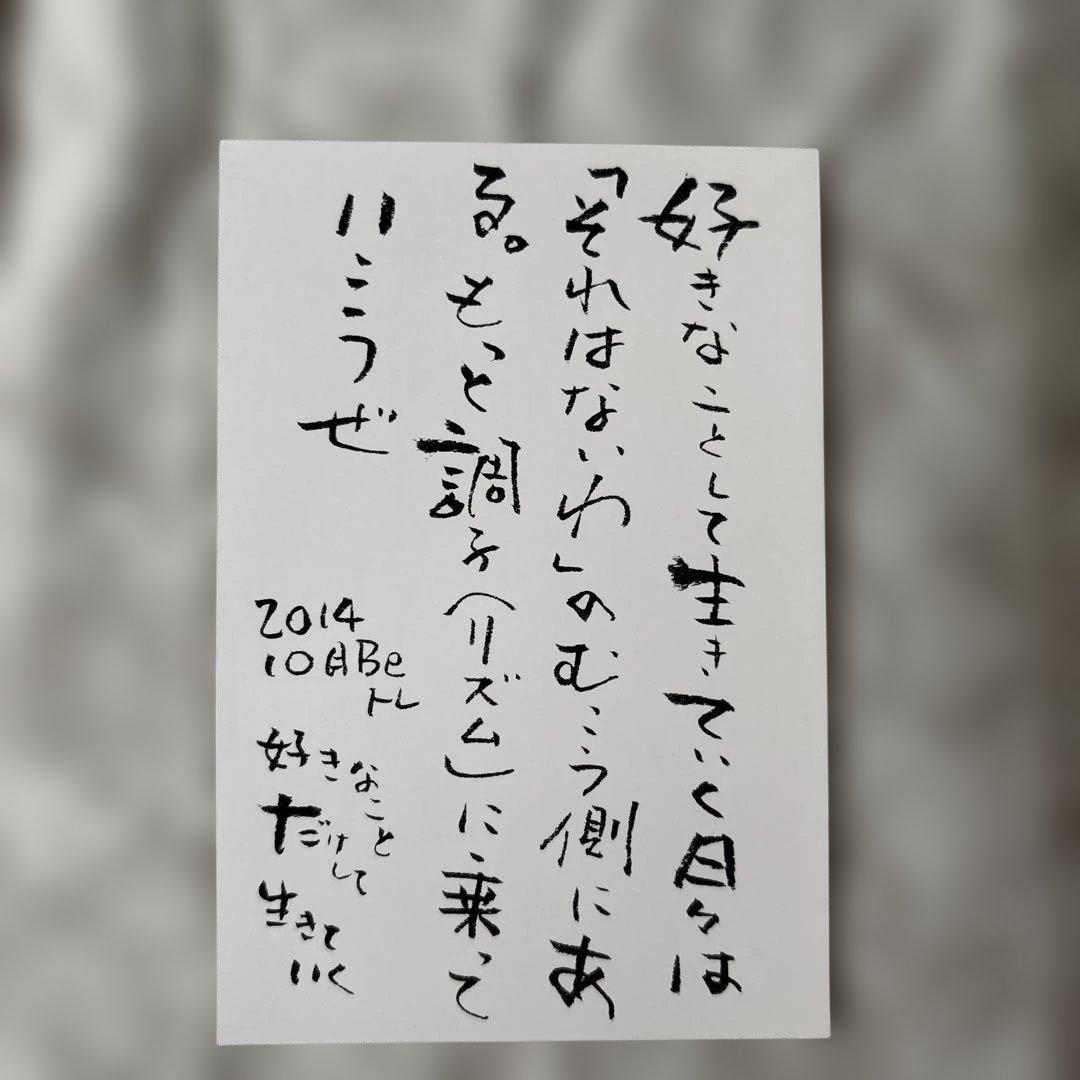 好きなことして生きていく日々は
「それはないわ」のむこう側にあ
る。もっと調子(リズム)に乗って
いこうぜ
2014
10月Be
トレ
好きなこと
だけして
生きて
いく